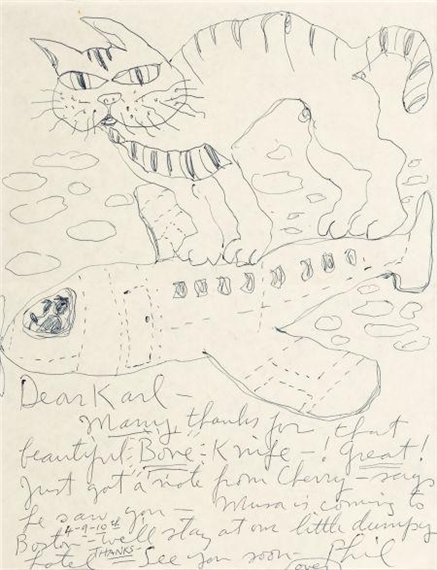 Dear Karl —
Many, thanks for that
beautiful - Bone - Knife — ! Great!
Just got a note from Cherry — says
he saw you — Musa is coming to
Boston — we'll stay at our little dumpy
4-9-10th
hotel — See you soon — Phil
THANKS-
(over)